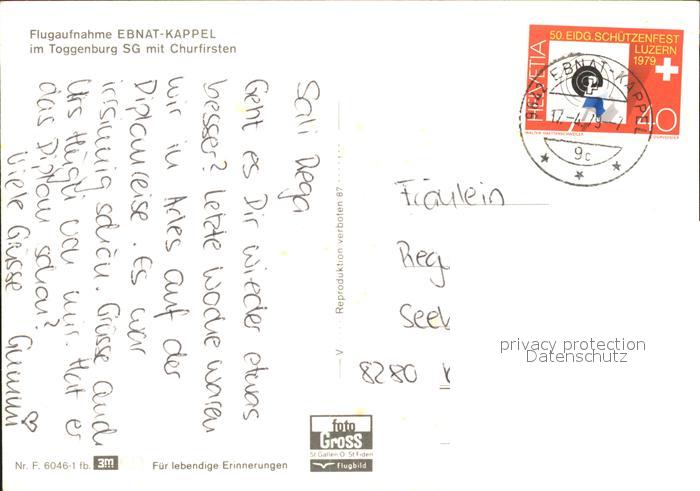 Flugaufnahme EBNAT-KAPPEL
im Toggenburg SG mit Churfirsten
Sali Regi
Geht es Dir wieder etwas
besser? Letzte Woche waren
wir in Arles auf der
Diplomreise. Es war
irrsinnig schön. Grüsse auch
Urs Hügli von mir. Hat er
das Diplom schon?
Viele Grüsse
Reproduktion verboten 87
HELVETIA
50. EIDG. SCHÜTZENFEST
LUZERN
1979
40
EBNAT-KAPPEL
17.-4.79
9c
Fräulein
Reg
See
8280
privacy protection
Datenschutz
foto
Gross
St Gallen O St Fiden
flugbild
Nr. F. 6046-1 fb. 3m
Für lebendige Erinnerungen